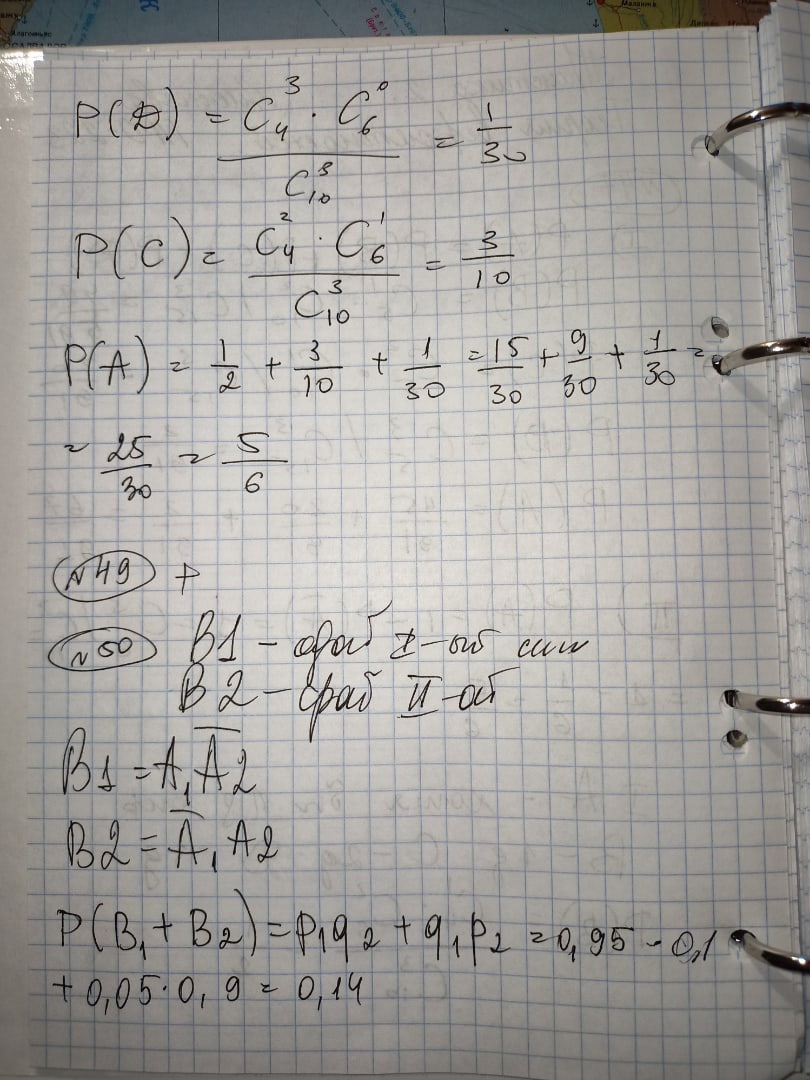 P(D) = C₄³ · C₆⁰ / C₁₀³ = 1/30
P(C) = C₄² · C₆¹ / C₁₀³ = 3/10
P(A) = 1/2 + 3/10 + 1/30 = 15/30 + 9/30 + 1/30 =
= 25/30 = 5/6
№49 P
№50 B1 – сраб I-ый сиг
B2 – сраб II-ой
B1 = A₁A̅2
B2 = A̅₁A2
P(B₁ + B₂) = p₁q₂ + q₁p₂ = 0,95 · 0,1
+ 0,05 · 0,9 = 0,14